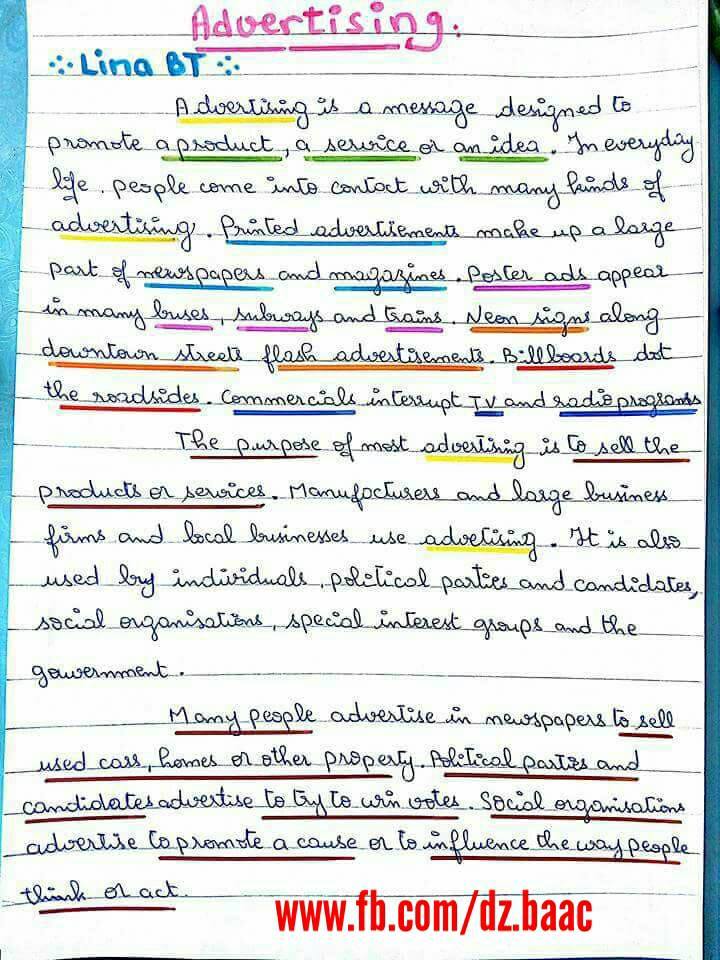 Advertising.
Lina BT
Advertising is a message designed to
promote a product, a service or an idea. In everyday
life, people come into contact with many kinds of
advertising. Printed advertisements make up a large
part of newspapers and magazines. Poster ads appear
in many buses, subways and trains. Neon signs along
downtown streets flash advertisements. Billboards dot
the roadsides. Commercials interrupt TV and radio programs
The purpose of most advertising is to sell the
products or services. Manufacturers and large business
firms and local businesses use advetising. It is also
used by individuals, political parties and candidates,
social organisations, special interest groups and the
government.
Many people advertise in newspapers to sell
used cars, homes or other property. Political parties and
candidates advertise to try to win votes. Social organisations
advertise to promote a cause or to influence the way people
think or act.
www.fb.com/dz.baac